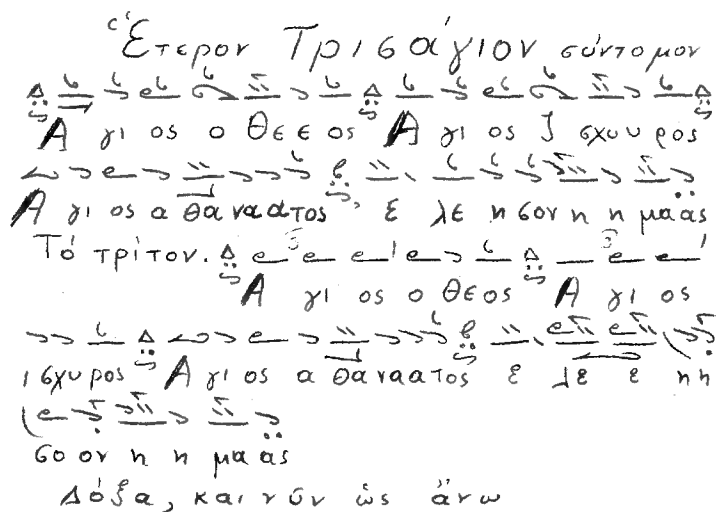 Ἕτερον Τρισάγιον σύντομον
Α γι ος ο Θε ε ος Α γι ος Ι σχυ υ ρος
Α γι ος α θα να α τος, ε λε η σον η η μα ας
Τό τρίτον. Α γι ος ο Θε ος Α γι ος
ι σχυ ρος Α γι ος α θα να α τος ε λε ε η η
σο ον η η μα ας
Δόξα, και νῦν ὡς ἄνω